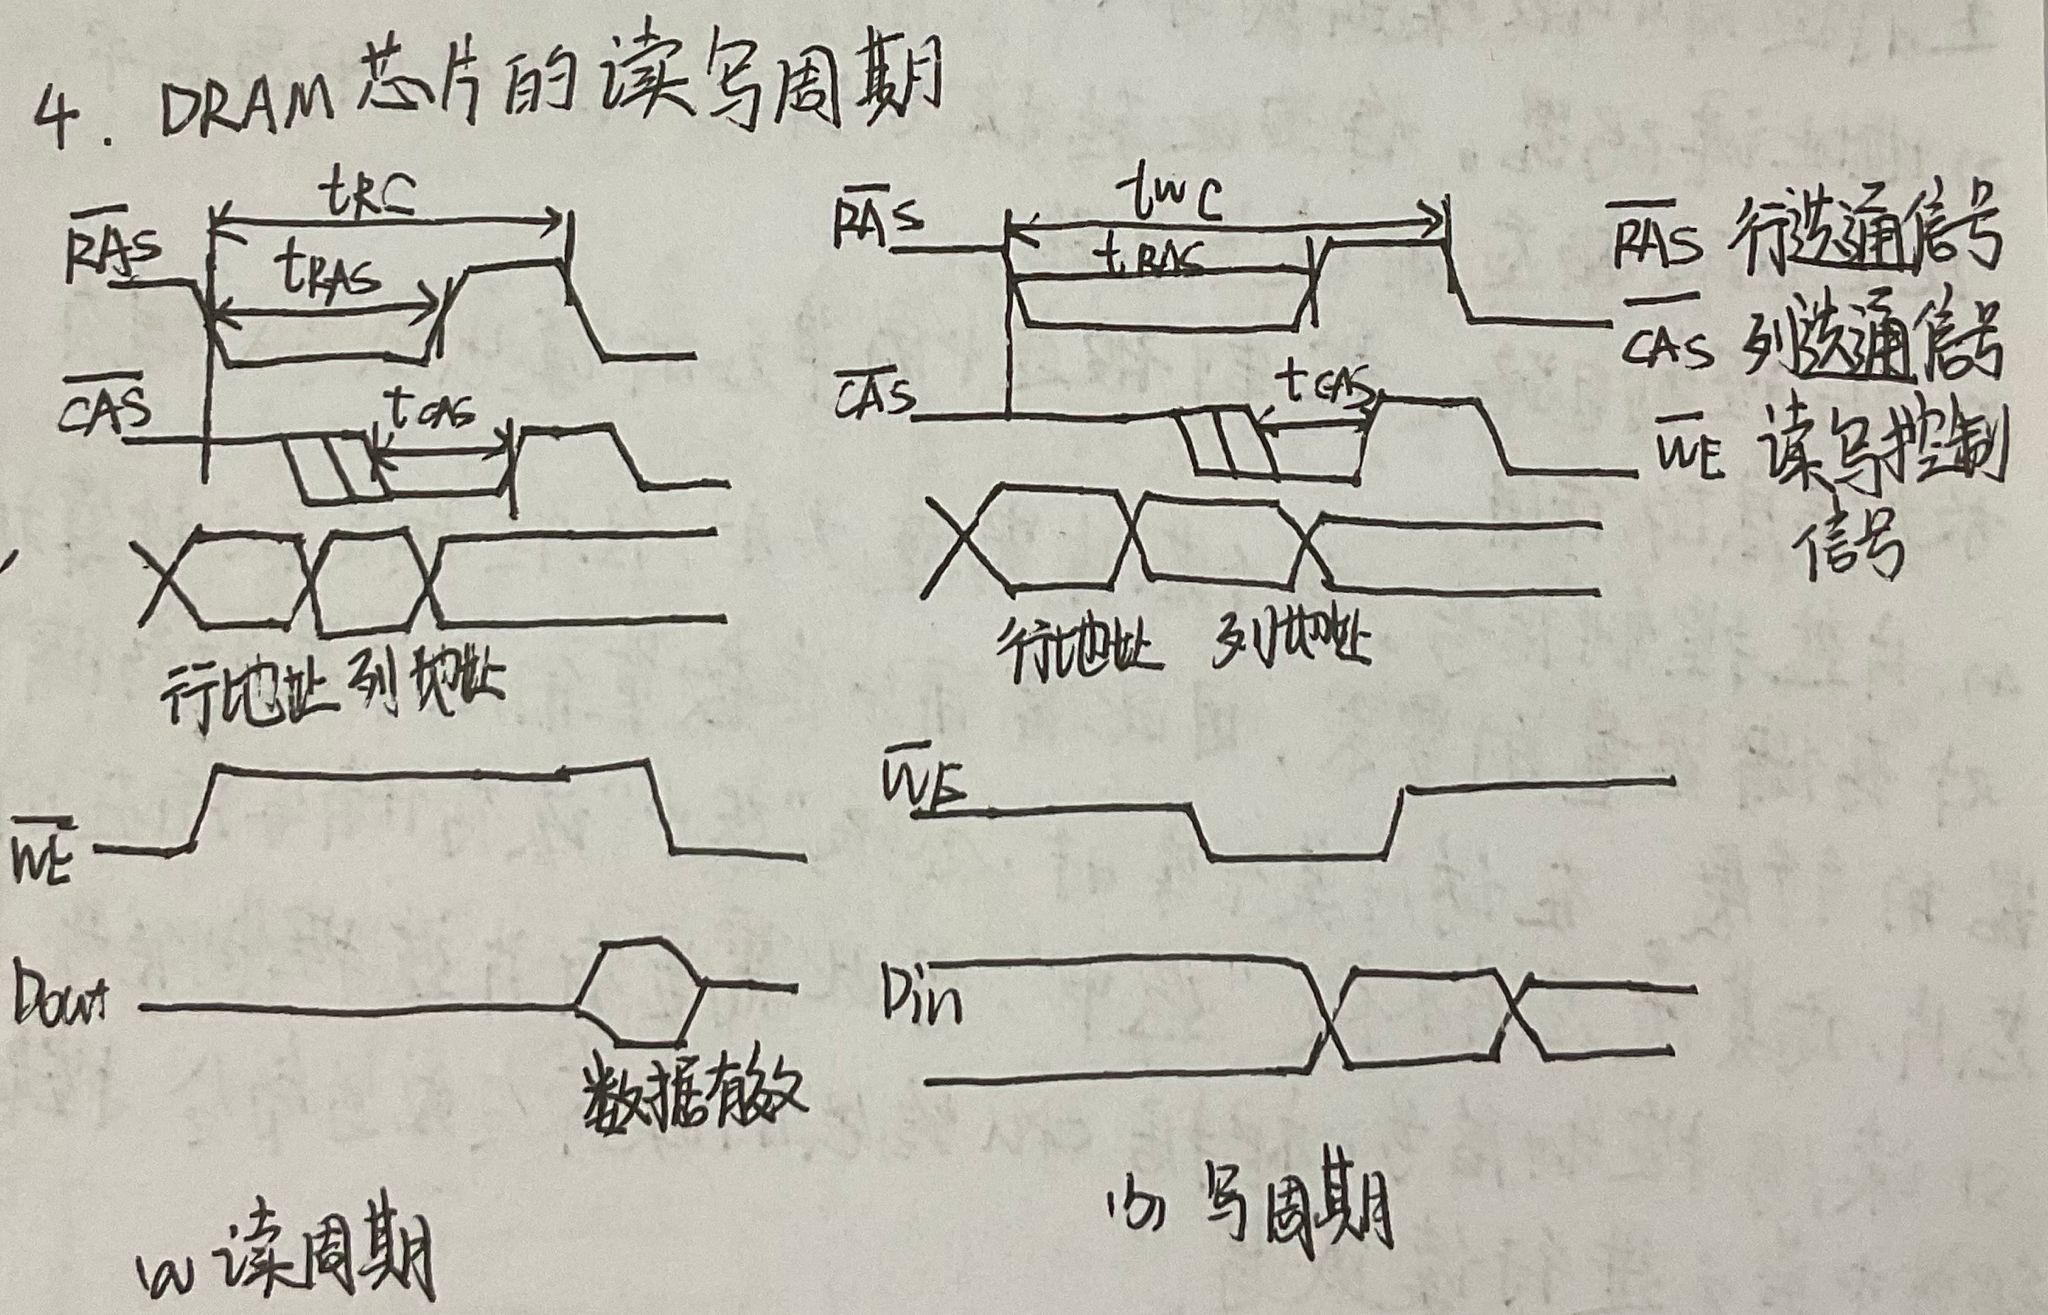 4. DRAM芯片的读写周期
tRC
RAS
tRAS
CAS
tCAS
行地址 列地址
WE
Dout
数据有效
(a) 读周期
tWC
RAS
tRAS
CAS
tCAS
行地址 列地址
WE
Din
(b) 写周期
RAS 行选通信号
CAS 列选通信号
WE 读写控制
信号